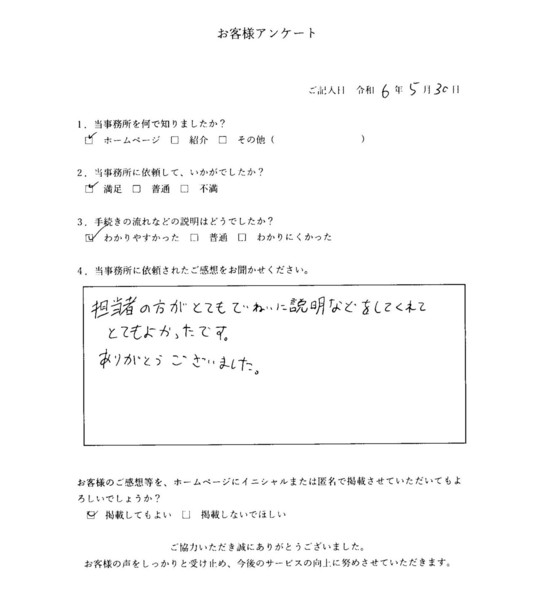 お客様アンケート
ご記入日 令和 6 年 5 月 30 日
1．当事務所を何で知りましたか？
☑ ホームページ □ 紹介 □ その他（ ）
2．当事務所に依頼して、いかがでしたか？
☑ 満足 □ 普通 □ 不満
3．手続きの流れなどの説明はどうでしたか？
☑ わかりやすかった □ 普通 □ わかりにくかった
4．当事務所に依頼されたご感想をお聞かせください。
担当者の方がとてもていねいに説明などをしてくれて
とてもよかったです。
ありがとうございました。
お客様のご感想等を、ホームページにイニシャルまたは匿名で掲載させていただいてもよ
ろしいでしょうか？
☑ 掲載してもよい □ 掲載しないでほしい
ご協力いただき誠にありがとうございました。
お客様の声をしっかりと受け止め、今後のサービスの向上に努めさせていただきます。